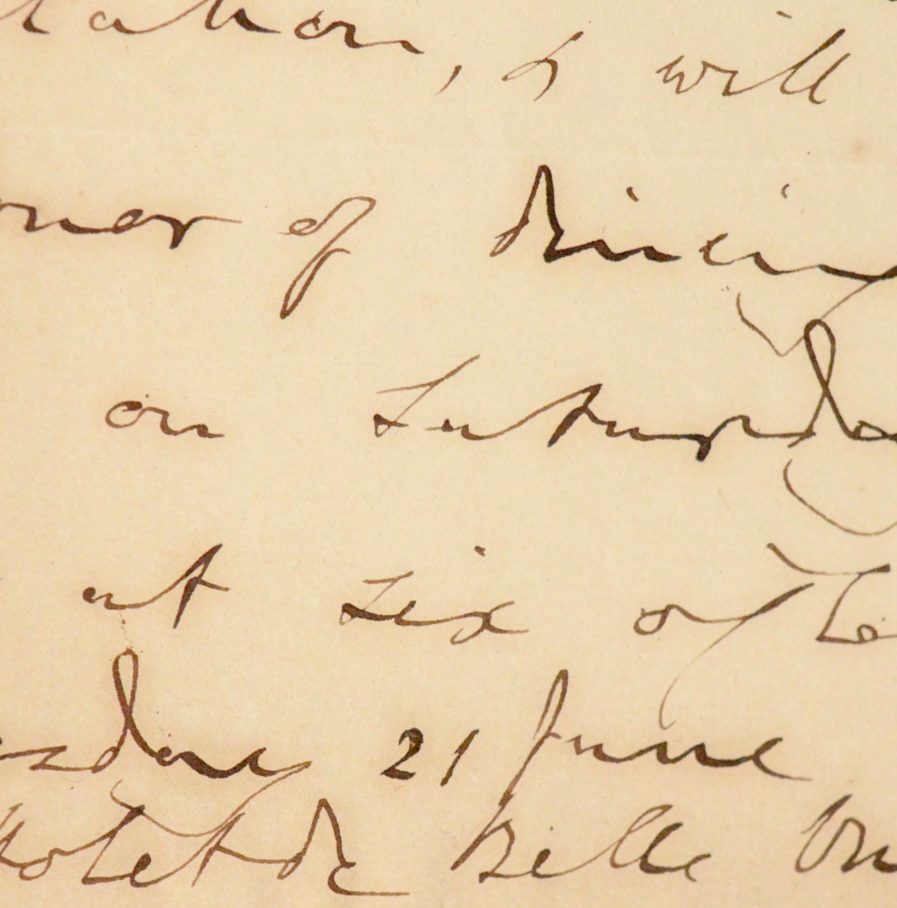 tation, & will
onor of dining
on Saturda
at six o'
sday 21 June
Hotel de